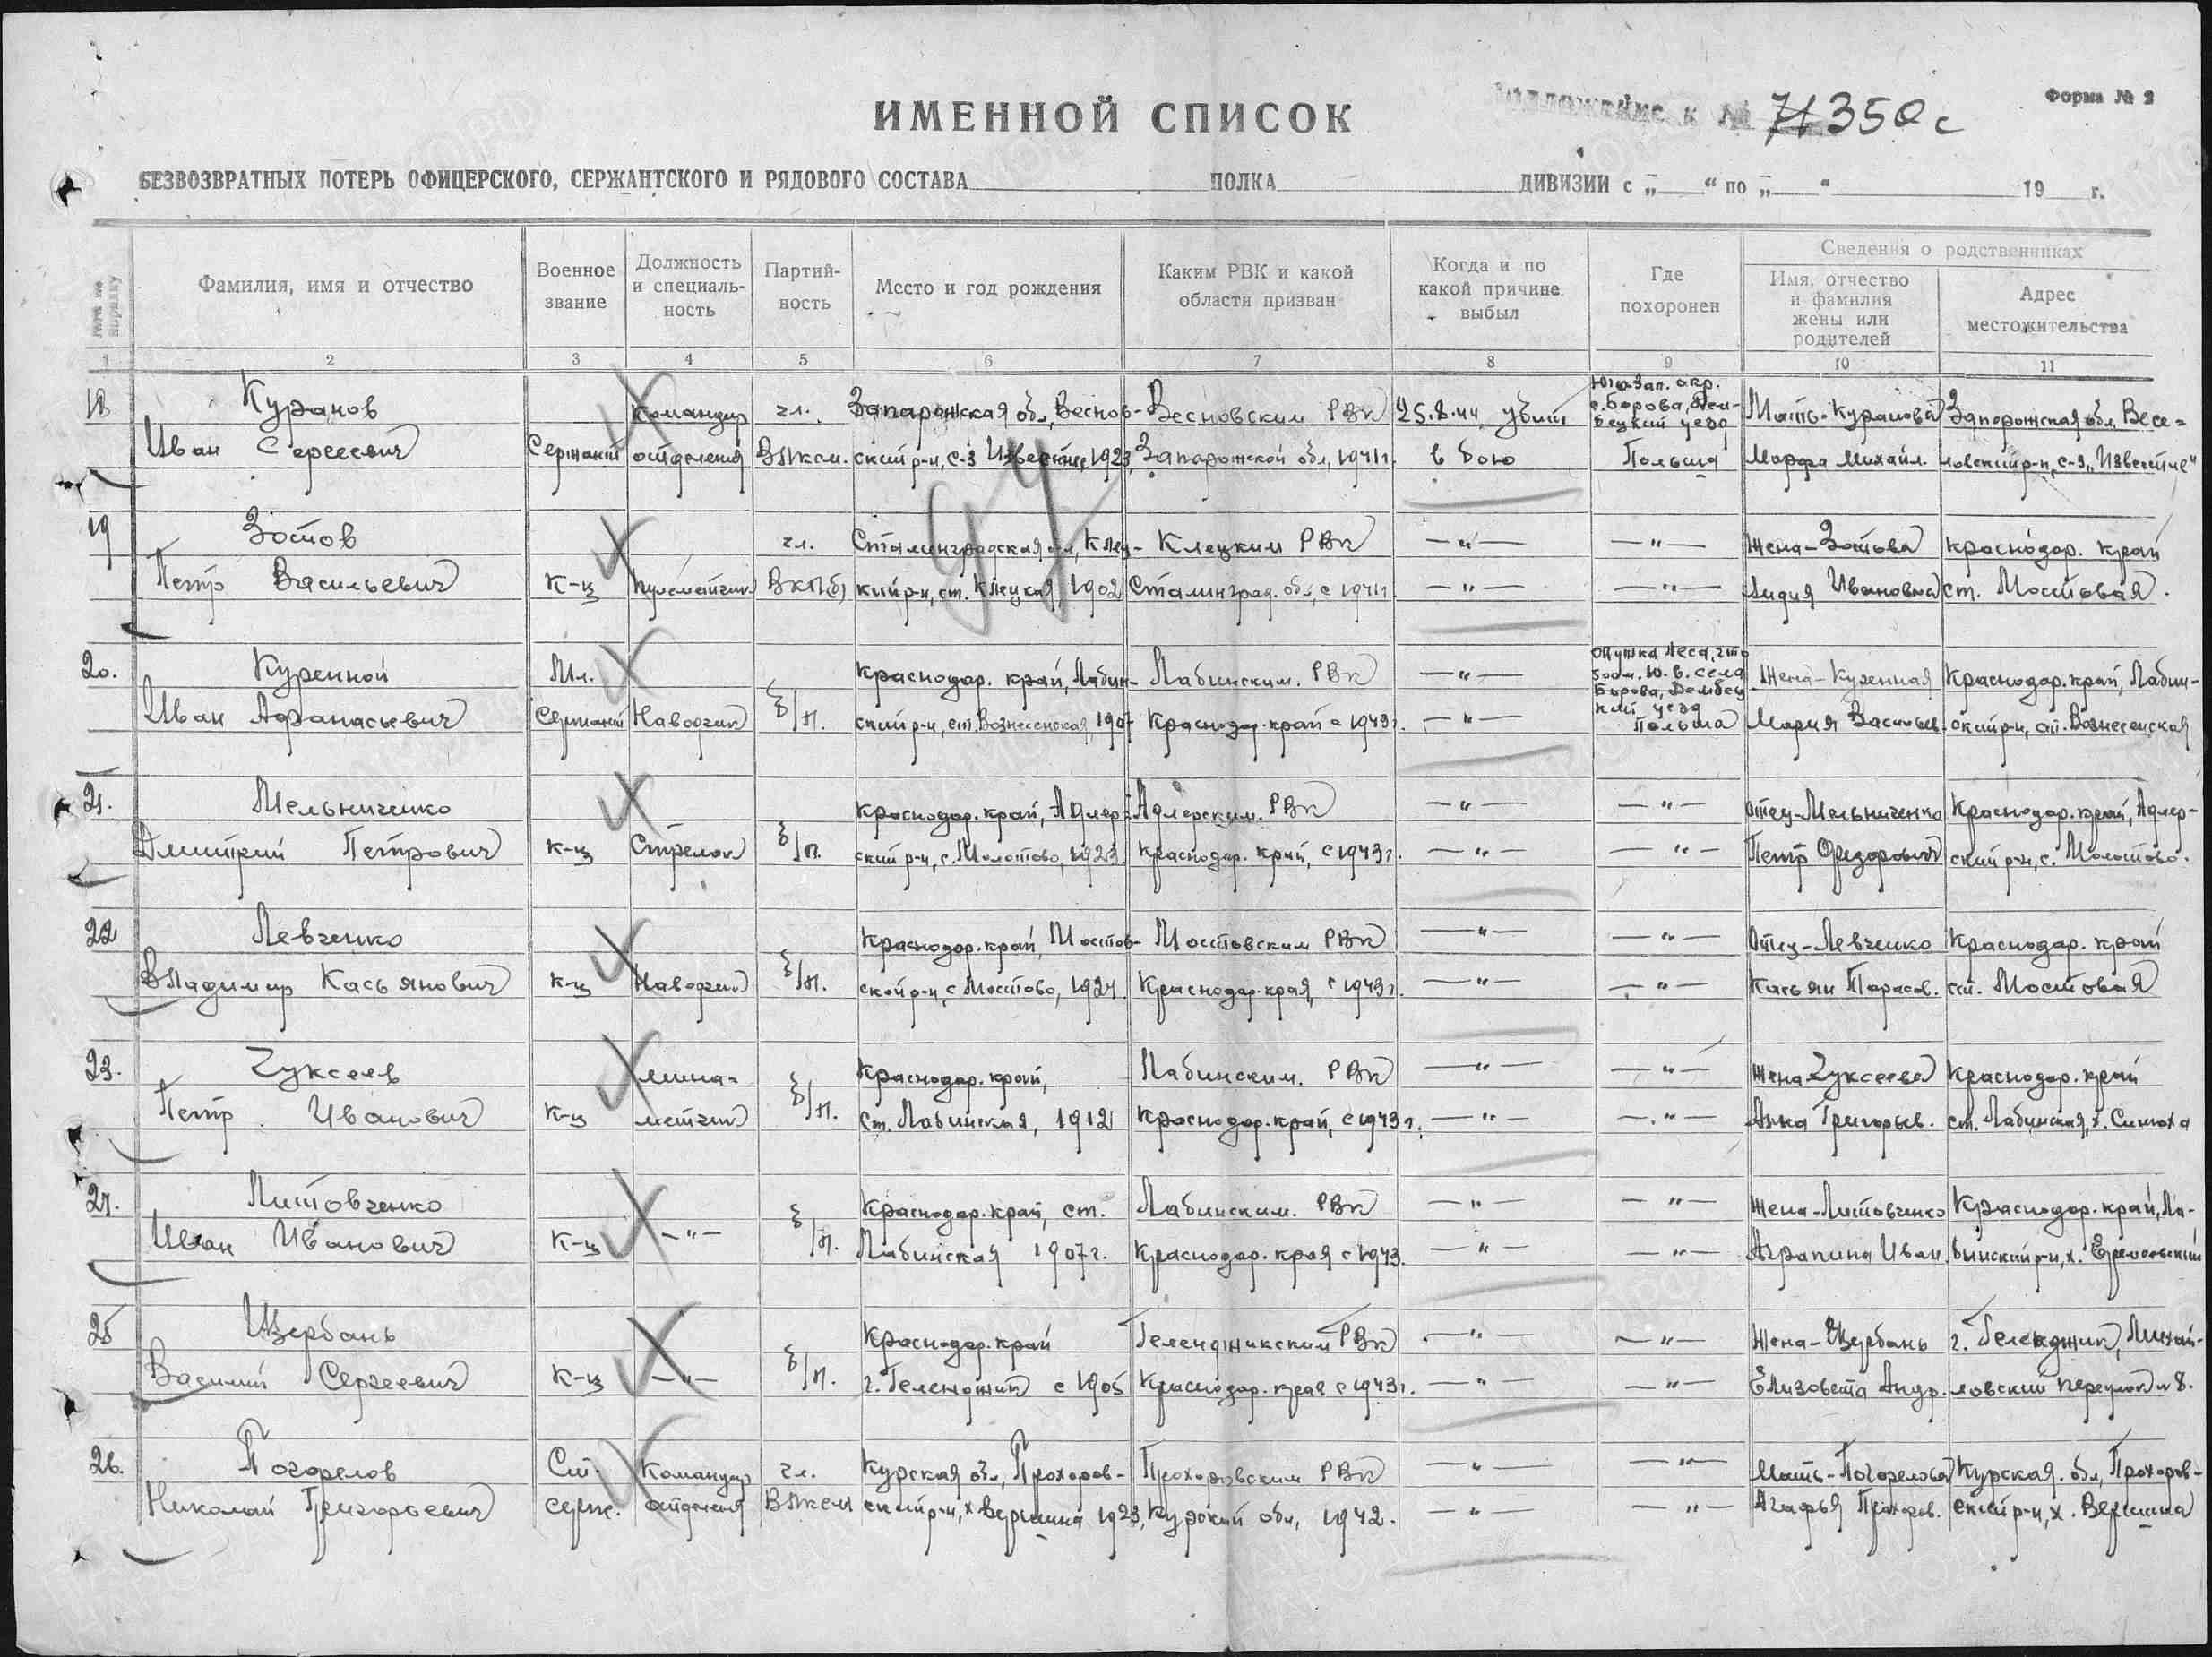 ИМЕННОЙ СПИСОК
к № 71350с
Форма № 2
БЕЗВОЗВРАТНЫХ ПОТЕРЬ ОФИЦЕРСКОГО, СЕРЖАНТСКОГО И РЯДОВОГО СОСТАВА ПОЛКА ДИВИЗИИ с „ “ по „ “ 19 г.
Фамилия, имя и отчество
Военное
звание
Должность
и специаль-
ность
Партий-
ность
Место и год рождения
Каким РВК и какой
области призван
Когда и по
какой причине
выбыл
Где
похоронен
Сведения о родственниках
Имя, отчество
и фамилия
жены или
родителей
Адрес
местожительства
1 2 3 4 5 6 7 8 9 10 11
18
Куранов
Иван Сергеевич
Сержант
Командир
отделения
чл.
ВЛКСМ.
Запорожская обл, Веснов-
ский р-н, с-з Известие, 1923
Весновским РВК
Запорожской обл, 1941г.
25.8.44 убит
в бою
Юго-Зап. окр.
с. Борова, Дем-
бецкий уезд
Польша
Мать-Куранова
Марфа Михайл.
Запорожская обл, Весе-
ловский р-н, с-з „Известие"
19
Зотов
Петр Васильевич
К-ц
Пулеметчик
чл.
ВКП(б)
Сталинградская обл, Клец-
кий р-н, ст. Клецкая, 1902
Клецким РВК
Сталинград. обл, с 1941г.
— " —
— " —
— " —
— " —
Жена-Зотова
Лидия Ивановна
Краснодар. край
ст. Мостовая.
20.
Куренной
Иван Афанасьевич
Мл.
Сержант
Наводчик
б/п.
Краснодар. край, Лабин-
ский р-н, ст. Вознесенская, 1907
Лабинским. РВК
Краснодар. край с 1943г.
— " —
— " —
Опушка леса, что
500м. Ю.В. села
Борова, Дембец
кий уезд
Польша
Жена-Куренная
Мария Васильев.
Краснодар. край, Лабин-
ский р-н, ст. Вознесенская
21.
Мельниченко
Дмитрий Петрович
К-ц
Стрелок
б/п.
Краснодар. край, Адлер-
ский р-н, с. Молотово, 1923.
Адлерским. РВК
Краснодар. край, с 1943г.
— " —
— " —
— " —
— " —
Отец-Мельниченко
Петр Федорович
Краснодар. край, Адлер-
ский р-н, с. Молотово.
22
Левченко
Владимир Касьянович
К-ц
Наводчик
б/п.
Краснодар. край, Мостов-
ской р-н, с Мостово, 1924.
Мостовским РВК
Краснодар. края, с 1943г.
— " —
— " —
— " —
— " —
Отец-Левченко
Касьян Тарасов.
Краснодар. край
ст. Мостовая
23.
Чуксеев
Петр Иванович
К-ц
Мино-
метчик
б/п.
Краснодар. край,
ст. Лабинская, 1912
Лабинским. РВК
Краснодар. край, с 1943г.
— " —
— " —
— " —
— " —
Жена Чуксеева
Анна Григорьев.
Краснодар. край
ст. Лабинская, х. Синюха
24.
Литовченко
Иван Иванович
К-ц
— " —
б/п.
Краснодар. край, ст.
Лабинская 1907г.
Лабинским. РВК
Краснодар. края с 1943.
— " —
— " —
— " —
— " —
Жена-Литовченко
Аграпина Иван.
Краснодар. край, Ла-
бинский р-н, х.
25
Щербань
Василий Сергеевич
К-ц
— " —
б/п.
Краснодар. край
г. Геленджик с 1905
Геленджикским РВК
Краснодар. края с 1943г.
— " —
— " —
— " —
— " —
Жена-Щербань
Елизовета Андр.
г. Геленджик, Михай-
ловский переулок №8.
26.
Погорелов
Николай Григорьевич
Ст.
серж.
Командир
отделения
чл.
ВЛКСМ
Курская обл, Прохоров-
ский р-н, х. Вершина 1923,
Прохоровским РВК
Курской обл, 1942.
— " —
— " —
— " —
— " —
Мать-Погорелова
Агафья Прохоров.
Курская. обл, Прохоров-
ский р-н, х. Вершина